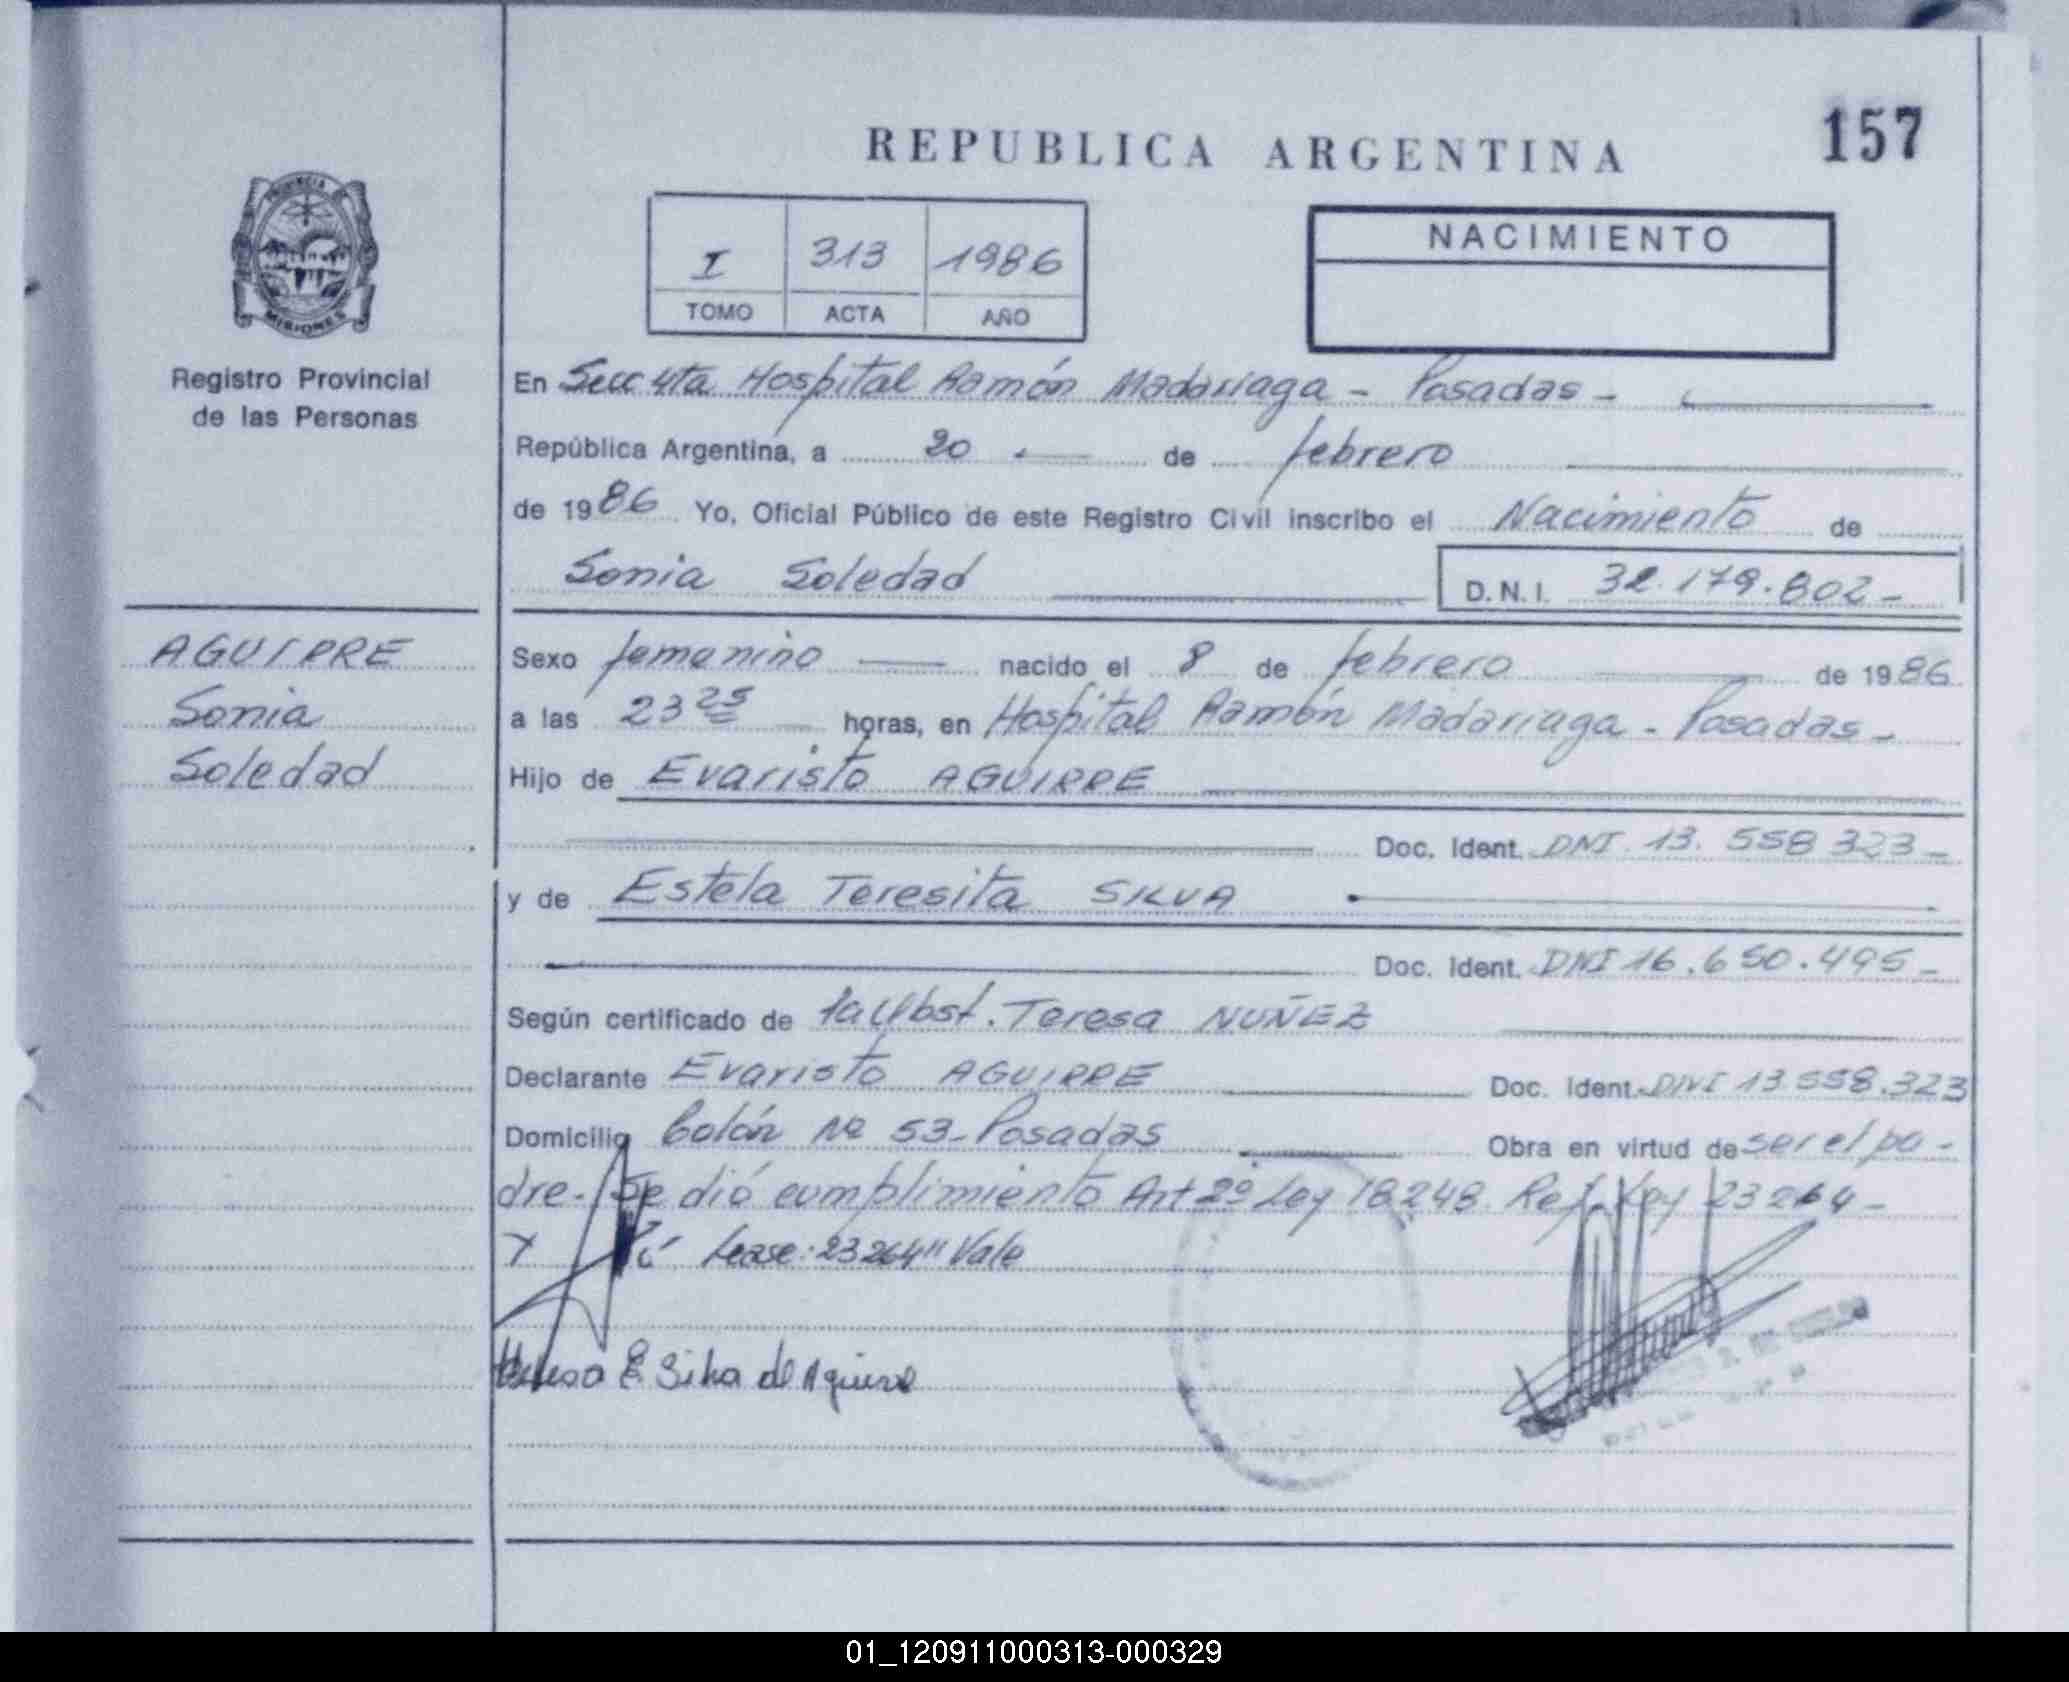 157
REPUBLICA ARGENTINA
PROVINCIA
MISIONES
Registro Provincial
de las Personas
I 313 1986
TOMO ACTA AÑO
NACIMIENTO
En Secc 4ta Hospital Ramón Madariaga - Posadas -
República Argentina, a 20 de febrero
de 1986 Yo, Oficial Público de este Registro Civil inscribo el Nacimiento de
Sonia Soledad D.N.I. 32.179.802-
AGUIRRE
Sonia
Soledad
Sexo femenino nacido el 8 de febrero de 1986
a las 23 25 horas, en Hospital Ramón Madariaga - Posadas -
Hijo de Evaristo AGUIRRE
Doc. Ident. DNI 13.558 323-
y de Estela Teresita SILVA
Doc. Ident. DNI 16.650.495-
Según certificado de la Obst. Teresa NUÑEZ
Declarante Evaristo AGUIRRE Doc. Ident. DNI 13.558.323
Domicilio Colón Nº 53-Posadas Obra en virtud de ser el pa-
dre- Se dió cumplimiento Art 2º Ley 18.248. Ref. Ley 23264-
Lease: 23264" Vale
Teresa E Silva de Aguirre
01_120911000313-000329